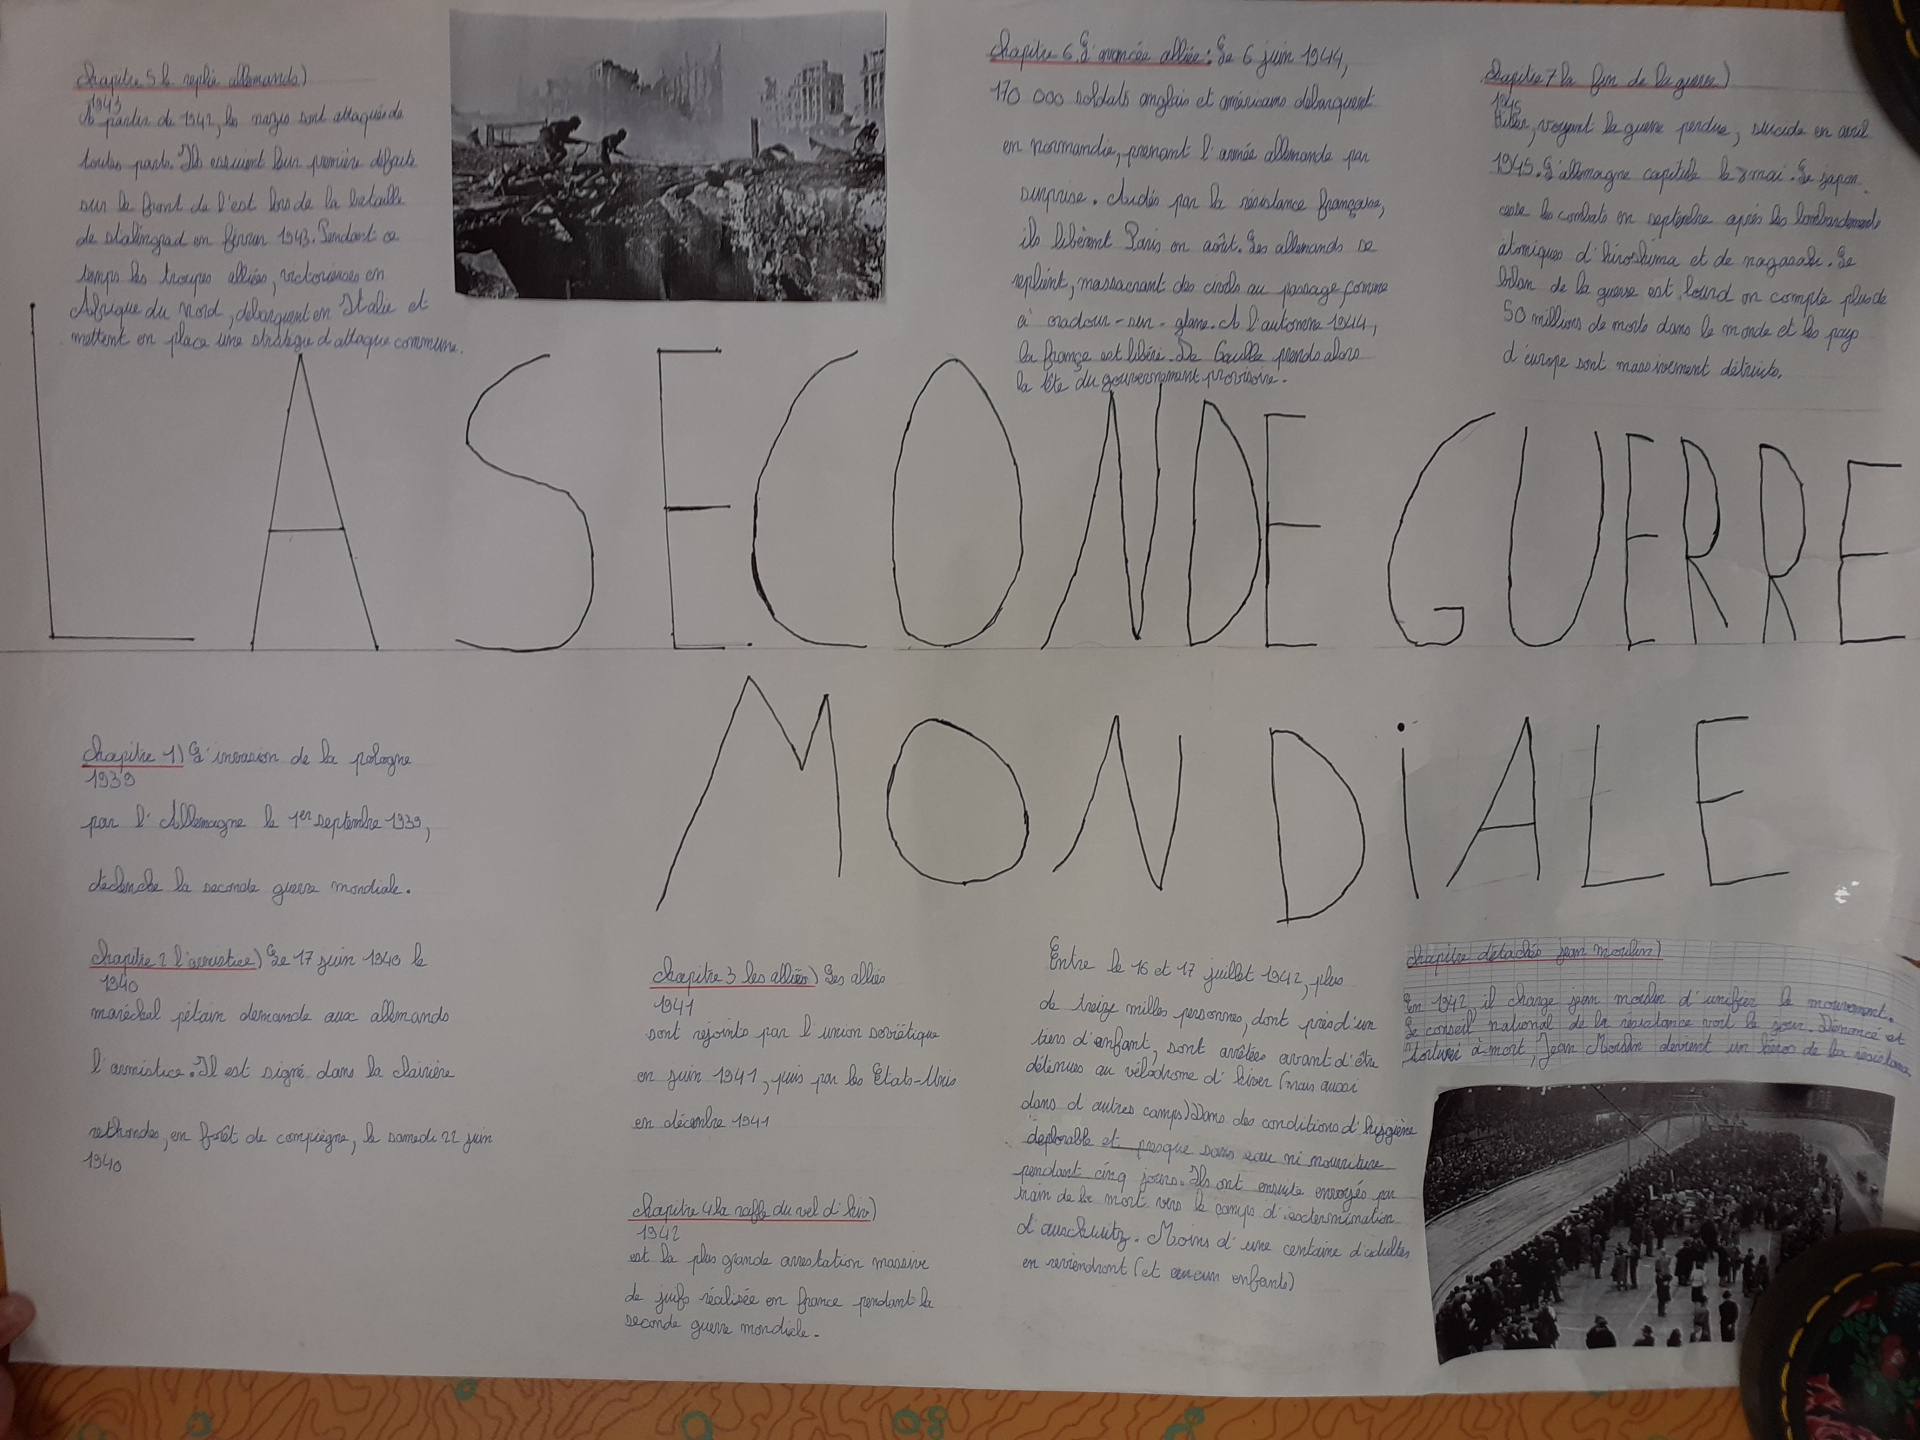 chapitre 5 le replie allemands)
1943
A partir de 1942, les nazis sont attaqués de
toutes parts. Ils essuient leur première défaite
sur le front de l'est lors de la bataille
de stalingrad en février 1943. Pendant ce
temps les troupes alliées, victorieuses en
Afrique du Nord, débarquent en Italie et
mettent en place une stratégie d'attaque commune.
chapitre 6 L'avancée alliée: Le 6 juin 1944,
170 000 soldats anglais et américains débarquent
en normandie, prenant l'armée allemande par
surprise. Aidés par la résistance française,
ils libèrent Paris en août. Les allemands se
replient, massacrant des civils au passage comme
à oradour-sur-glane. A l'automne 1944,
la françe est libéré. De Gaulle prends alors
la tête du gouvernement provisoire.
chapitre 7 la fin de la guerre)
1945
Hitler, voyant la guerre perdue, suicide en avril
1945. L'allemagne capitule le 8 mai. Le japon
cesse les combats en septembre après les bombardements
atomiques d'hiroshima et de nagasaki. Le
bilan de la guerre est lourd on compte plus de
50 millions de morts dans le monde et les pays
d'europe sont massivement détruits.
LA SECONDE GUERRE
MONDiALE
chapitre 1) L'invasion de la pologne
1939
par l'Allemagne le 1er septembre 1939,
déclenche la seconde guerre mondiale.
chapitre 2 l'armistice) Le 17 juin 1940 le
1940
maréchal pétain demande aux allemands
l'armistice. Il est signé dans la clairière
rethondes, en forêt de compiègne, le samedi 22 juin
1940
chapitre 3 les alliés) Les alliés
1941
sont rejoints par l'union soviétique
en juin 1941, puis par les Etats-Unis
en décembre 1941
chapitre 4 la raffle du vel d'hiv)
1942
est la plus grande arrestation massive
de juifs réalisée en france pendant la
seconde guerre mondiale.
Entre le 16 et 17 juillet 1942, plus
de treize milles personnes, dont près d'un
tiers d'enfant, sont arrêtées avant d'être
détenues au vélodrome d'hiver (mais aussi
dans d'autres camps) Dans des conditions d'hygiène
déplorable et presque sans eau ni nourriture
pendant cinq jours. Ils ont ensuite envoyés par
train de la mort vers le camps d'extermination
d'auschwitz. Moins d'une centaine d'adultes
en reviendront (et aucun enfants)
chapitre détachés jean moulin)
En 1942 il charge jean moulin d'unifier le mouvement.
Le conseil national de la résistance voit le jour. Dénoncé et
torturé à mort, Jean Moulin devient un héros de la résistance